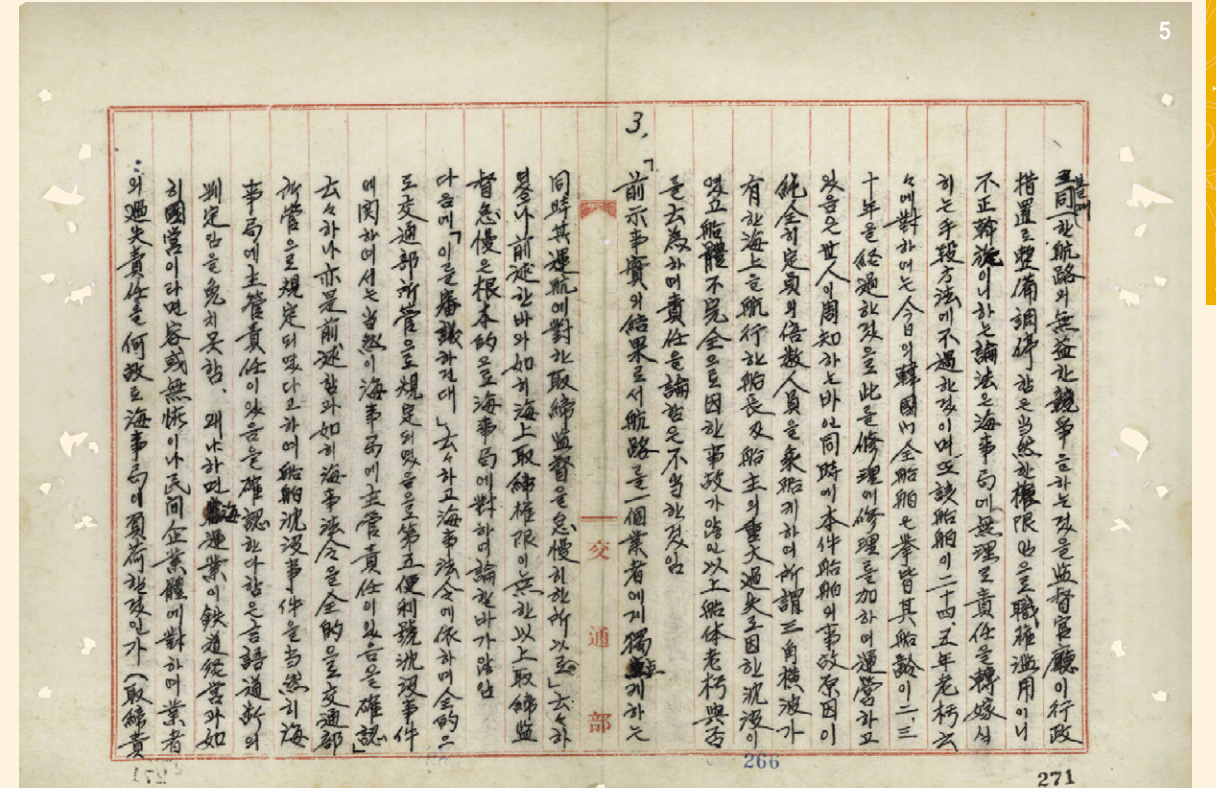 5
同一한 航路의 無益한 競爭을 하는 것을 監督官廳이 行政
措置로 整備調停함은 当然한 權限임으로 職権濫用이니
不正斡旋이니 하는 論法은 海事局에 無理로 責任을 轉嫁식
히는 手段方法에 不過한 것이며 또 該船舶이 二十四、五年老朽云
々에 對하여는 今日의 韓國內全船舶은 擧皆其船齡이 二、三
十年을 経過한 것으로 此를 修理에 修理를 加하여 運營하고
있음은 世人의 周知하는 바인 同時에 本件船舶의 事故原因이
純全히 定員의 倍數人員을 乘船케 하여 所謂 三角橫波가
有한 海上을 航行한 船長及船主의 重大過失로 因한 沈没이
였고 船體不完全으로 因한 事故가 않인 以上 船体老朽與否
를 云為하며 責任을 論함은 不当한 것임
3,
「前示事實의 結果로서 航路를 一個業者에게 獨 케 하는
同時 其運航에 對한 取締監督을 怠慢히 한 所以로」云々하
였으나 前述한 바와 如히 海上取締権限이 無한 以上 取締監
督怠慢은 根本的으로 海事局에 對하여 論할 바가 않임
다음에「이를 審議하건대」云々하고 海事法令에 依하며 全的으
로 交通部所管으로 規定되였음을 第五便利號沈没事件
에 関하여서는 当然이 海事局에 主管責任이 있음을 確認」
云々하나 亦是 前述함과 如히 海事法令을 全的으로 交通部
所管으로 規定되였다고 하여 船舶沈没事件을 当然히 海
事局에 主管責任이 있음을 確認한다 함은 言語道断의
判定임을 免치 못함. 왜냐하면 海運業이 鉄道経営과 如
히 國営이라면 容或無怪이나 民间企業體에 對하여 業者
의 過失責任을 何故로 海事局이 負荷할 것인가 (取締責
交通部
266
271